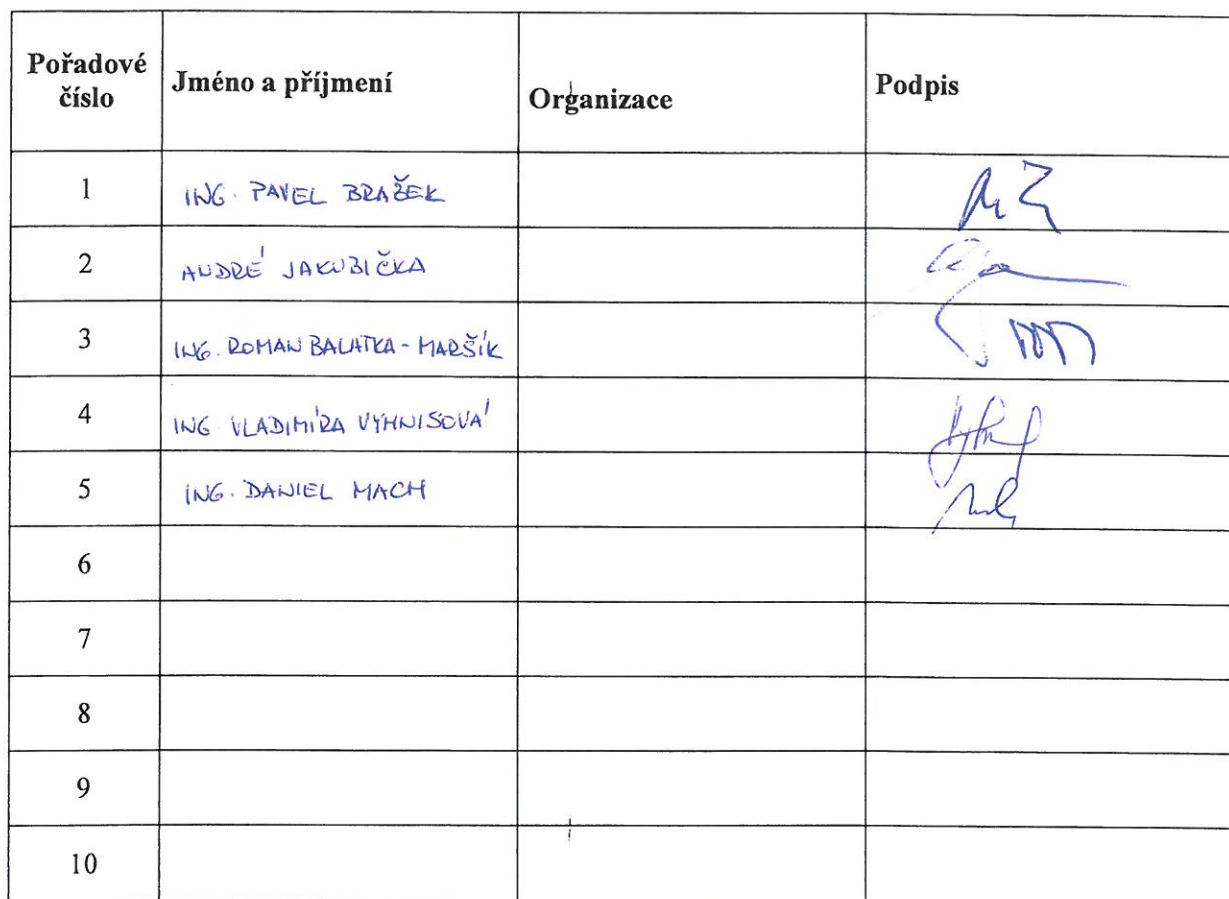 Pořadové číslo Jméno a příjmení Organizace Podpis
1 ING. PAVEL BRAŽEK
2 ANDRÉ JAKUBIČKA
3 ING. ROMAN BALATKA-MARŠÍK
4 ING. VLADIMÍRA VÝHNISOVÁ
5 ING. DANIEL MACH
6
7
8
9
10